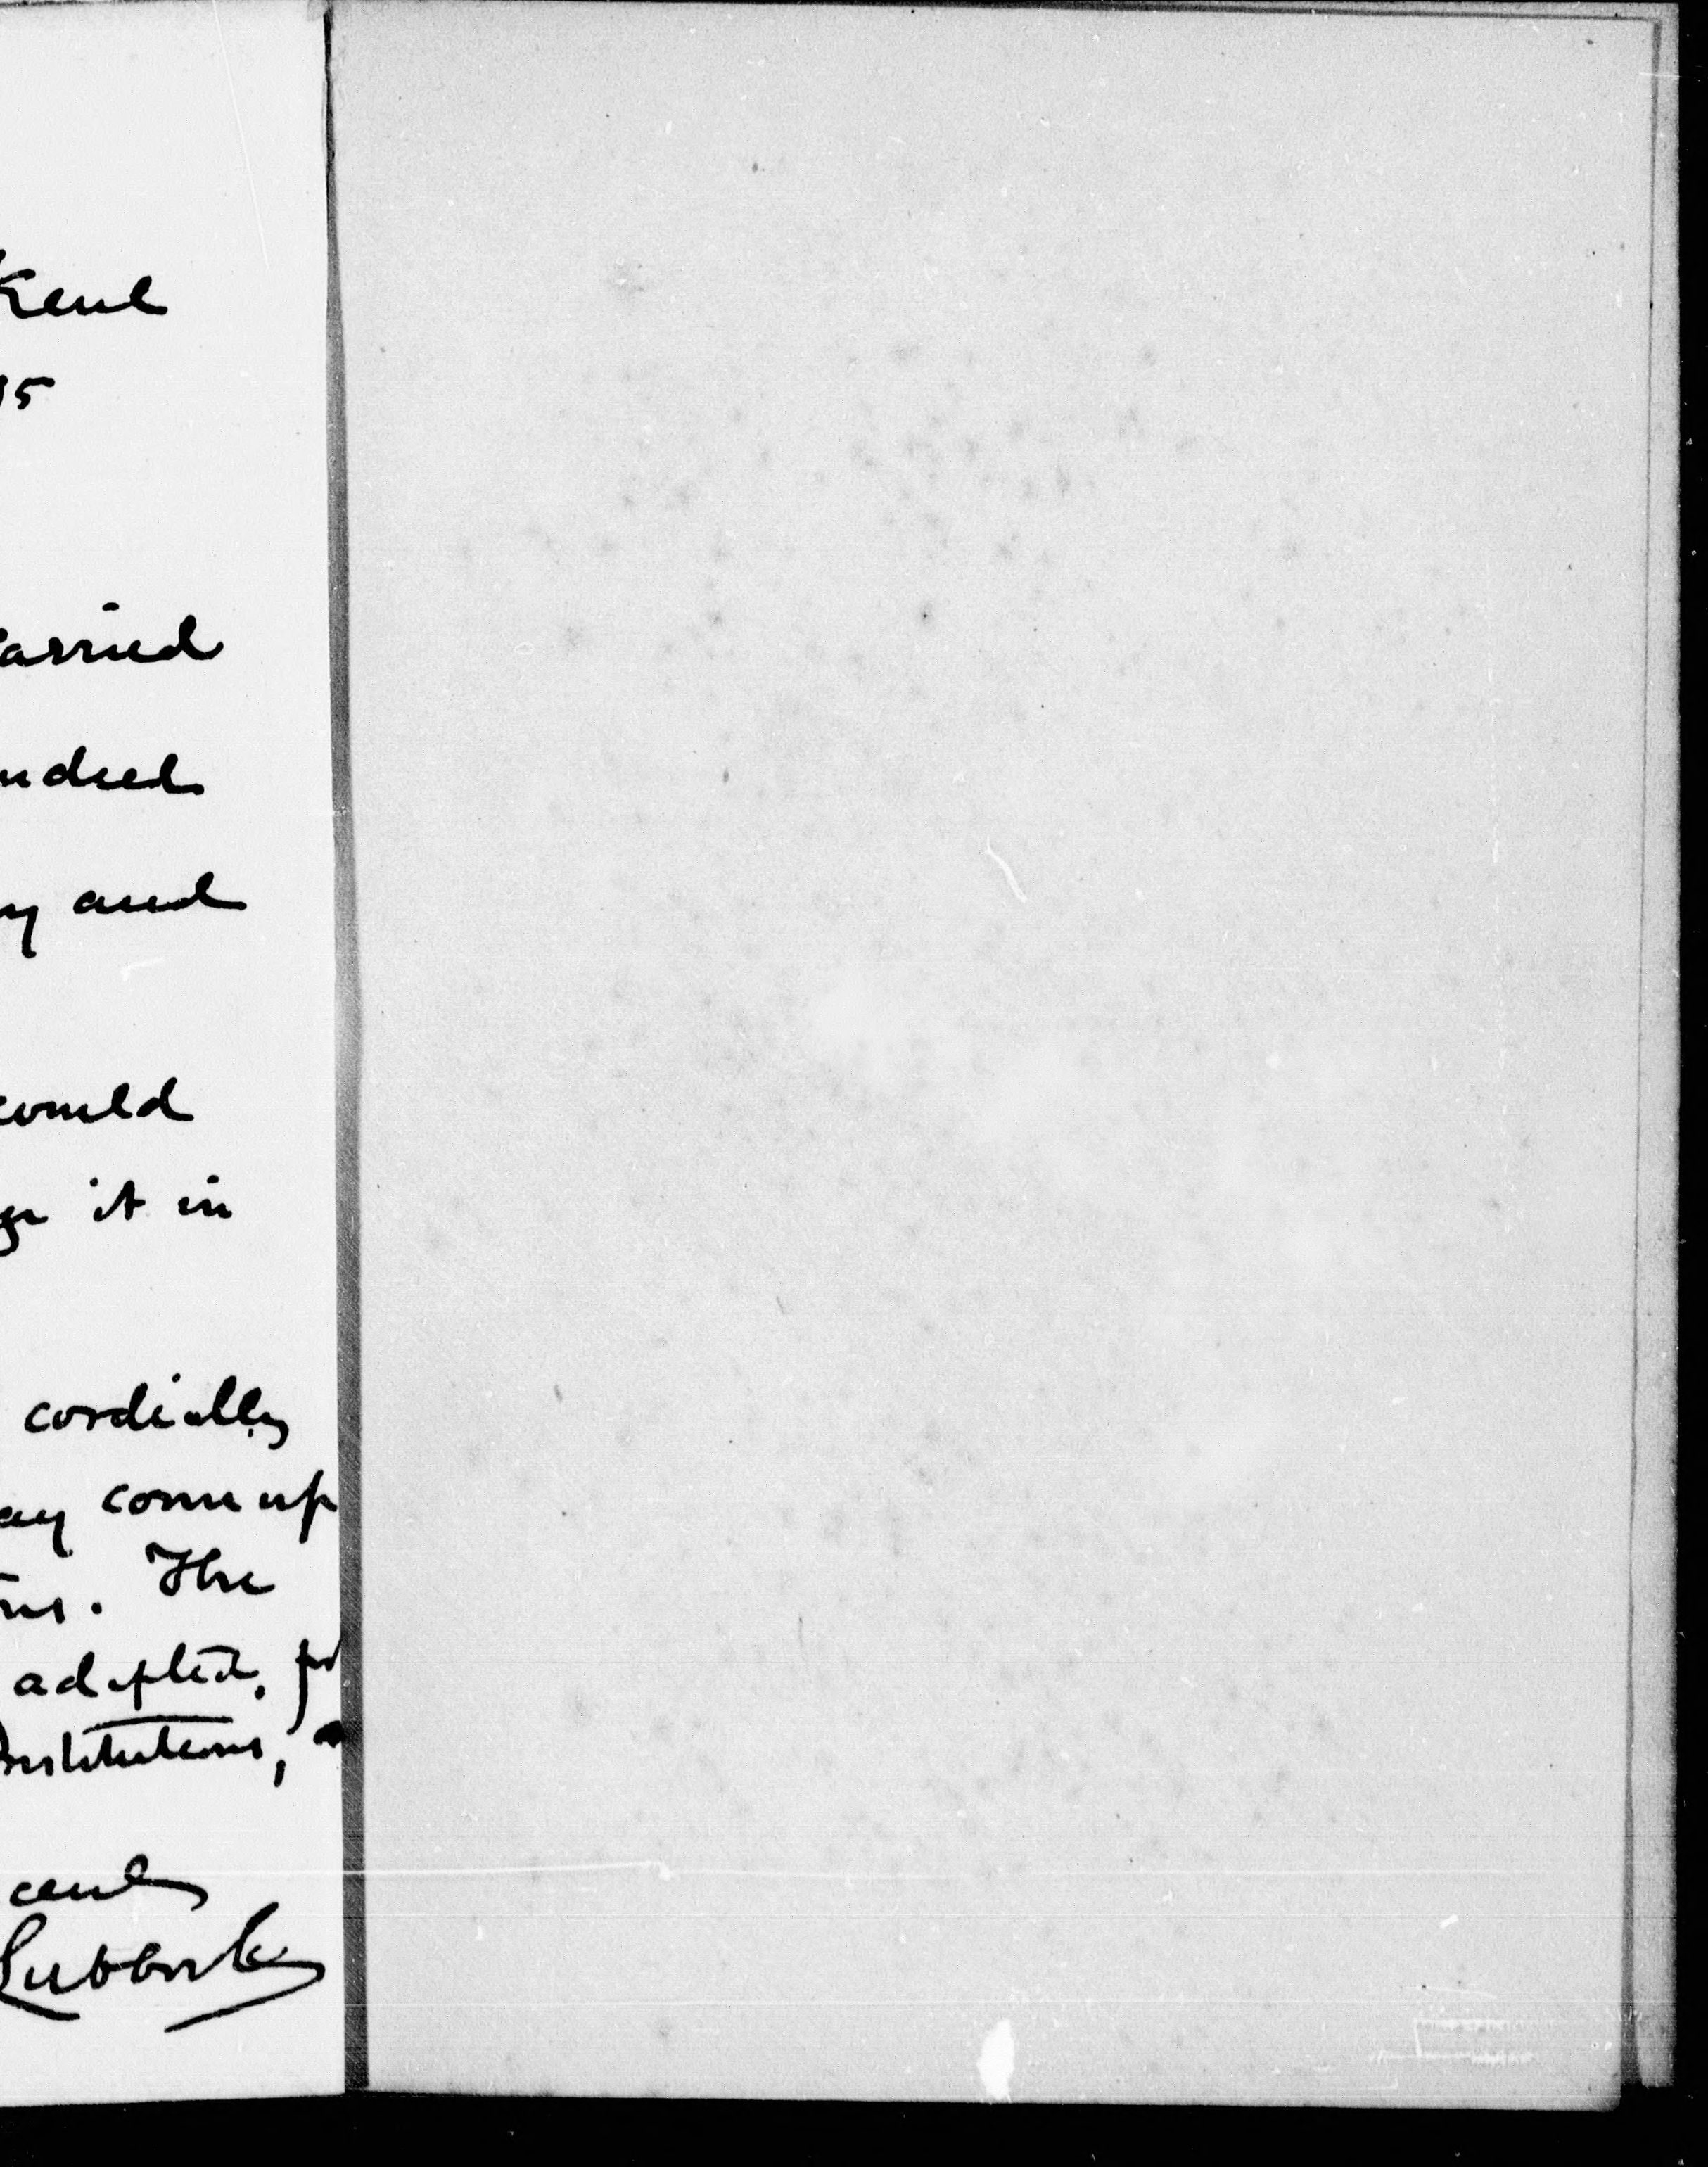 Kent
15
arried
ndeed
y and
could
it in
cordially
ay come up
ns. The
adopted, p
nstitutions,
Lubbock